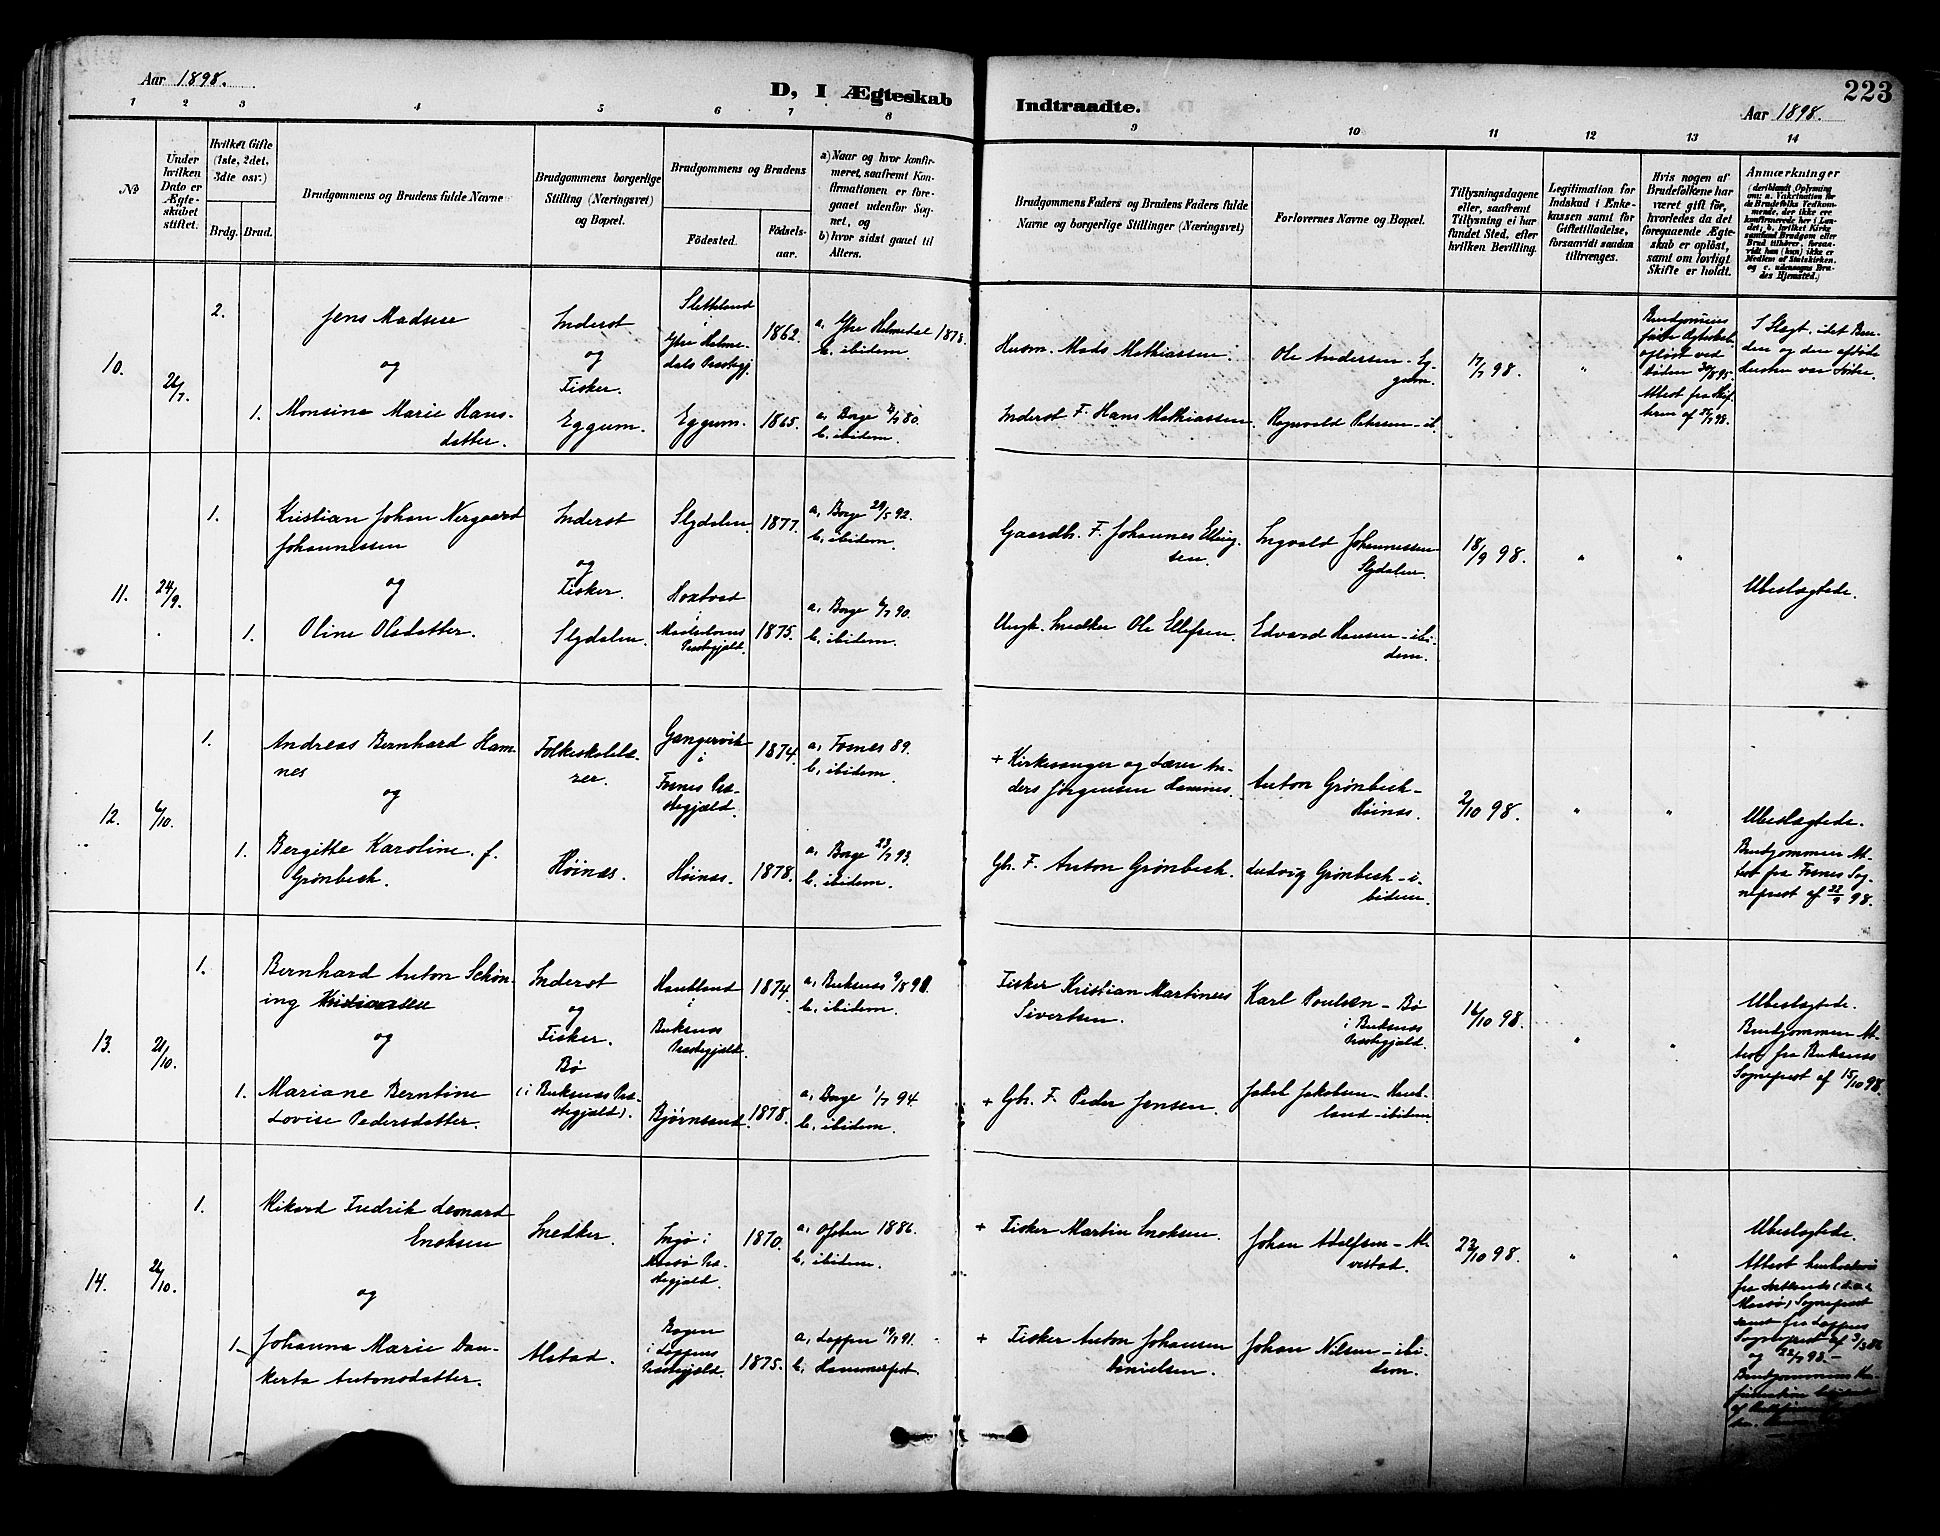 Aar 1898.
D, I Ægteskab
Indtraadte.
223
Aar 1898.
1 2 3 4 5 6 7 8
9 10 11 12 13 14
No
Under hvilken Dato er Ægteskabet stiftet.
Hvilket Gifte (1ste, 2det, 3die osv.)
Brdg. Brud.
Brudgommens og Brudens fulde Navne
Brudgommens borgerlige Stilling (Næringsvei) og Bopæl.
Brudgommens og Brudens
Födested.
Födsels-aar.
a) Naar og hvor konfirmeret, saafremt Konfirmationen er foregaaet udenfor Sognet, og
b) hvor sidst gaaet til Alters.
Brudgommens Faders og Brudens Faders fulde Navne og borgerlige Stillinger (Næringsvei)
Forlovernes Navne og Bopæl.
Tillysningsdagene eller, saafremt Tillysning ei har fundet Sted, efter hvilken Bevilling.
Legitimation for Indskud i Enkekassen samt for Giftetilladelse, forsaavidt saadan tiltrænges.
Hvis nogen af Brudefolkene har været gift för, hvorledes da det foregaaende Ægteskab er oplöst, samt om lovligt Skifte er holdt.
Anmærkninger
10.
26/7.
2.
Jens Madsen
og
1.
Monsine Marie Hans-
datter.
Inderst
og
Fisker.
Eggum.
Sletteland
i
Ytre Holme-
dals Præstegj.
Eggum.
1862.
1865.
a, Ytre Holmedal 1878.
b, ibidem.
a, Borge 4/7 80.
b, ibidem.
Husm. Mads Mathiassen.
Inderst F. Hans Mathiassen
Ole Andersen - Eg-
gum.
Regnvald Petersen - ib.
17/7 98.
"
Brudgommens
første Ægteskab
opløst ved
Døden 30/8 95.
Attest fra Skif-
teren af 25/7 98.
I Slægt, idet Bru-
den og den afdøde
Hustru var Søstre.
11.
24/9.
1.
Kristian Johan Nergaard
Johannessen
og
1.
Oline Olsdatter.
Inderst
og
Fisker.
Slydalen.
Slydalen.
i
Præstegjæld.
1877.
1875.
a, Borge 29/5 92.
b, ibidem.
a, Borge 6/7 90.
b, ibidem.
Gaardb. F. Johannes Elling-
sen.
Ungk. Snedker Ole Ellefsen.
Ingvald Johannessen
Slydalen.
Edvard Hansen - ibi-
dem.
18/9 98.
"
"
Ubeslægtede.
12.
6/10.
1.
Andreas Bernhard Ham-
nes
og
1.
Bergitte Karoline f.
Grønbech.
Folkeskolelæ-
rer.
Høinæs.
Gangervik
i
Fosnes Præ-
stegjæld.
Høinæs.
1874.
1878.
a, Fosnes 89.
b, ibidem.
a, Borge 23/7 93.
b, ibidem.
+ Kirkesanger og Lærer An-
ders Jørgensen Hamnes.
Gb. F. Anton Grønbech.
Anton Grønbech -
Høinæs.
Ludvig Grønbech - i-
bidem.
2/10 98.
"
"
Ubeslægtede.
Brudgommen At-
test fra Fosnes Sog-
neprest af 22/9 98.
13.
21/10.
1.
Bernhard Anton Schøn-
ing Kristiansen
og
1.
Mariane Berntine
Lovise Pedersdatter.
Inderst
og
Fisker.
Bø
(i Buksnæs Præ-
stegjæld).
Haubland
i
Buksnæs
Præstegjæld.
Bjørnsand.
1874.
1878.
a, Buksnæs 9/8 91.
b, ibidem.
a, Borge 1/7 94.
b, ibidem.
Fisker Kristian Martines
Sivertsen.
+ Gb. F. Peder Jensen.
Karl Poulsen - Bø
i Buksnæs
Præstegjæld.
Jadel Jakobsen - Haub-
land - ibidem
16/10 98.
"
"
Ubeslægtede.
Brudgommen At-
test fra Buksnæs
Sogneprest af 15/10 98.
14.
26/10.
1.
Rikard Fredrik Leonard
Enoksen
og
1.
Johanna Marie Dan-
kerta Antonsdatter.
Snedker.
Alstad.
Ingø i
Maasø Præ-
stegjæld.
Bogen
i Loppens
Præstegjæld.
1870.
1875.
a, Ofoten 1886.
b, ibidem.
a, Loppen 19/7 91.
b, Hammerfest.
+ Fisker Martin Enoksen.
+ Fisker Anton Johansen
Danielsen.
Johan Adolfsen - Al-
vestad.
Johan Nilsen - ibi-
dem.
23/10 98.
"
"
Ubeslægtede.
Attest
Maasø) Sogneprest
samt fra Loppens
Sogneprest af
og 22/7 98. -
Brudgommens